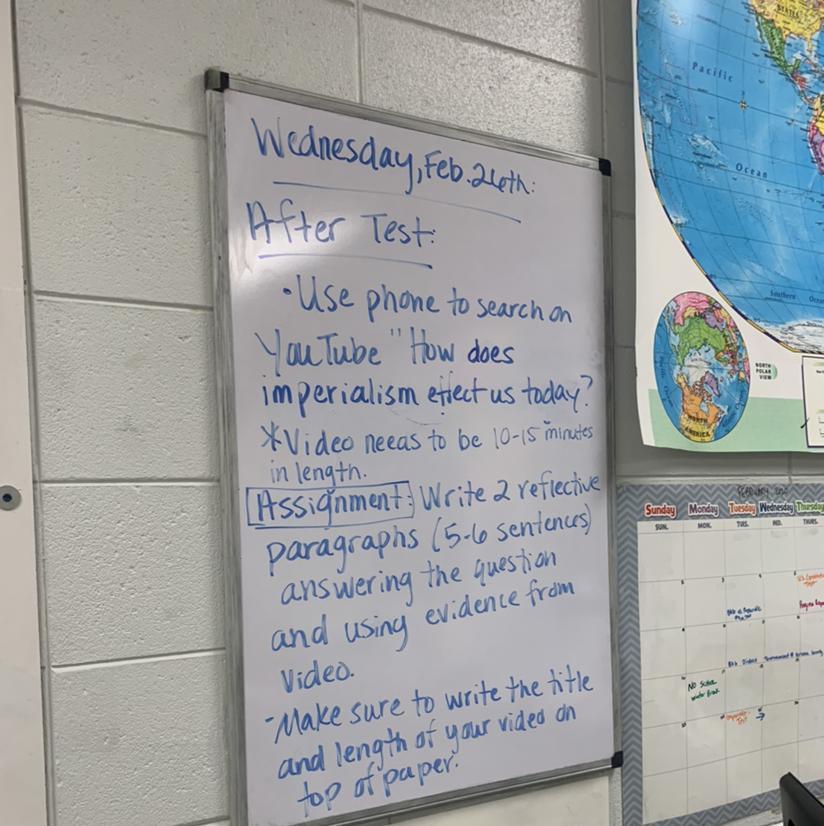 Wednesday, Feb. 26th:
After Test:
• Use phone to search on
YouTube "How does
imperialism effect us today?
*Video needs to be 10-15 minutes
in length.
Assignment: Write 2 reflective
paragraphs (5-6 sentences)
answering the question
and using evidence from
video.
-Make sure to write the title
and length of your video on
top of paper.
Pacific
Ocean
Southern Ocean
NORTH
POLAR
VIEW
NORTH
AMERICA
Sunday Monday Tuesday Wednesday Thursday
SUN. MON. TUES. WED. THURS.